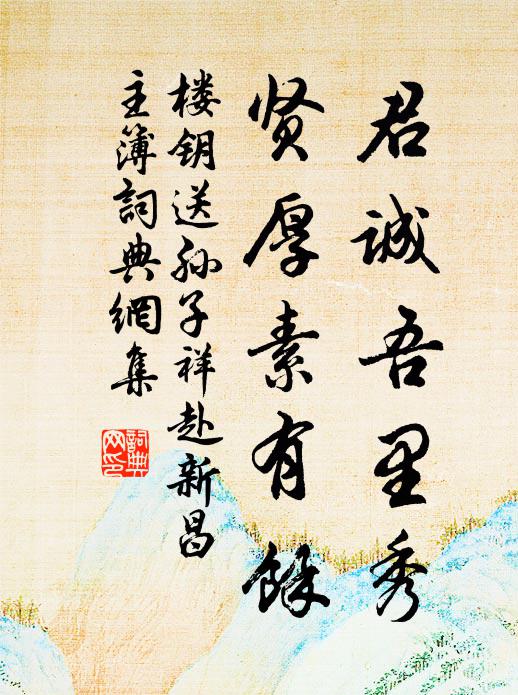 君诚吾里秀
贤厚素有馀
楼钥送孙子祥赴新昌
主簿詞典網集
詞典
网印